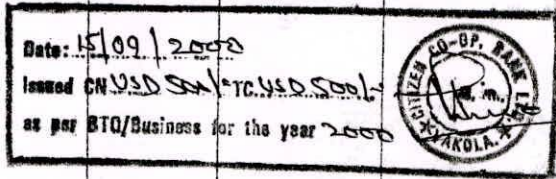 Date: 15/09/2000
Issued CN USD 500/- TC USD 500/-
as per BTQ/Business for the year 2000
CITIZEN CO-OP. BANK LTD.
VAKOLA.